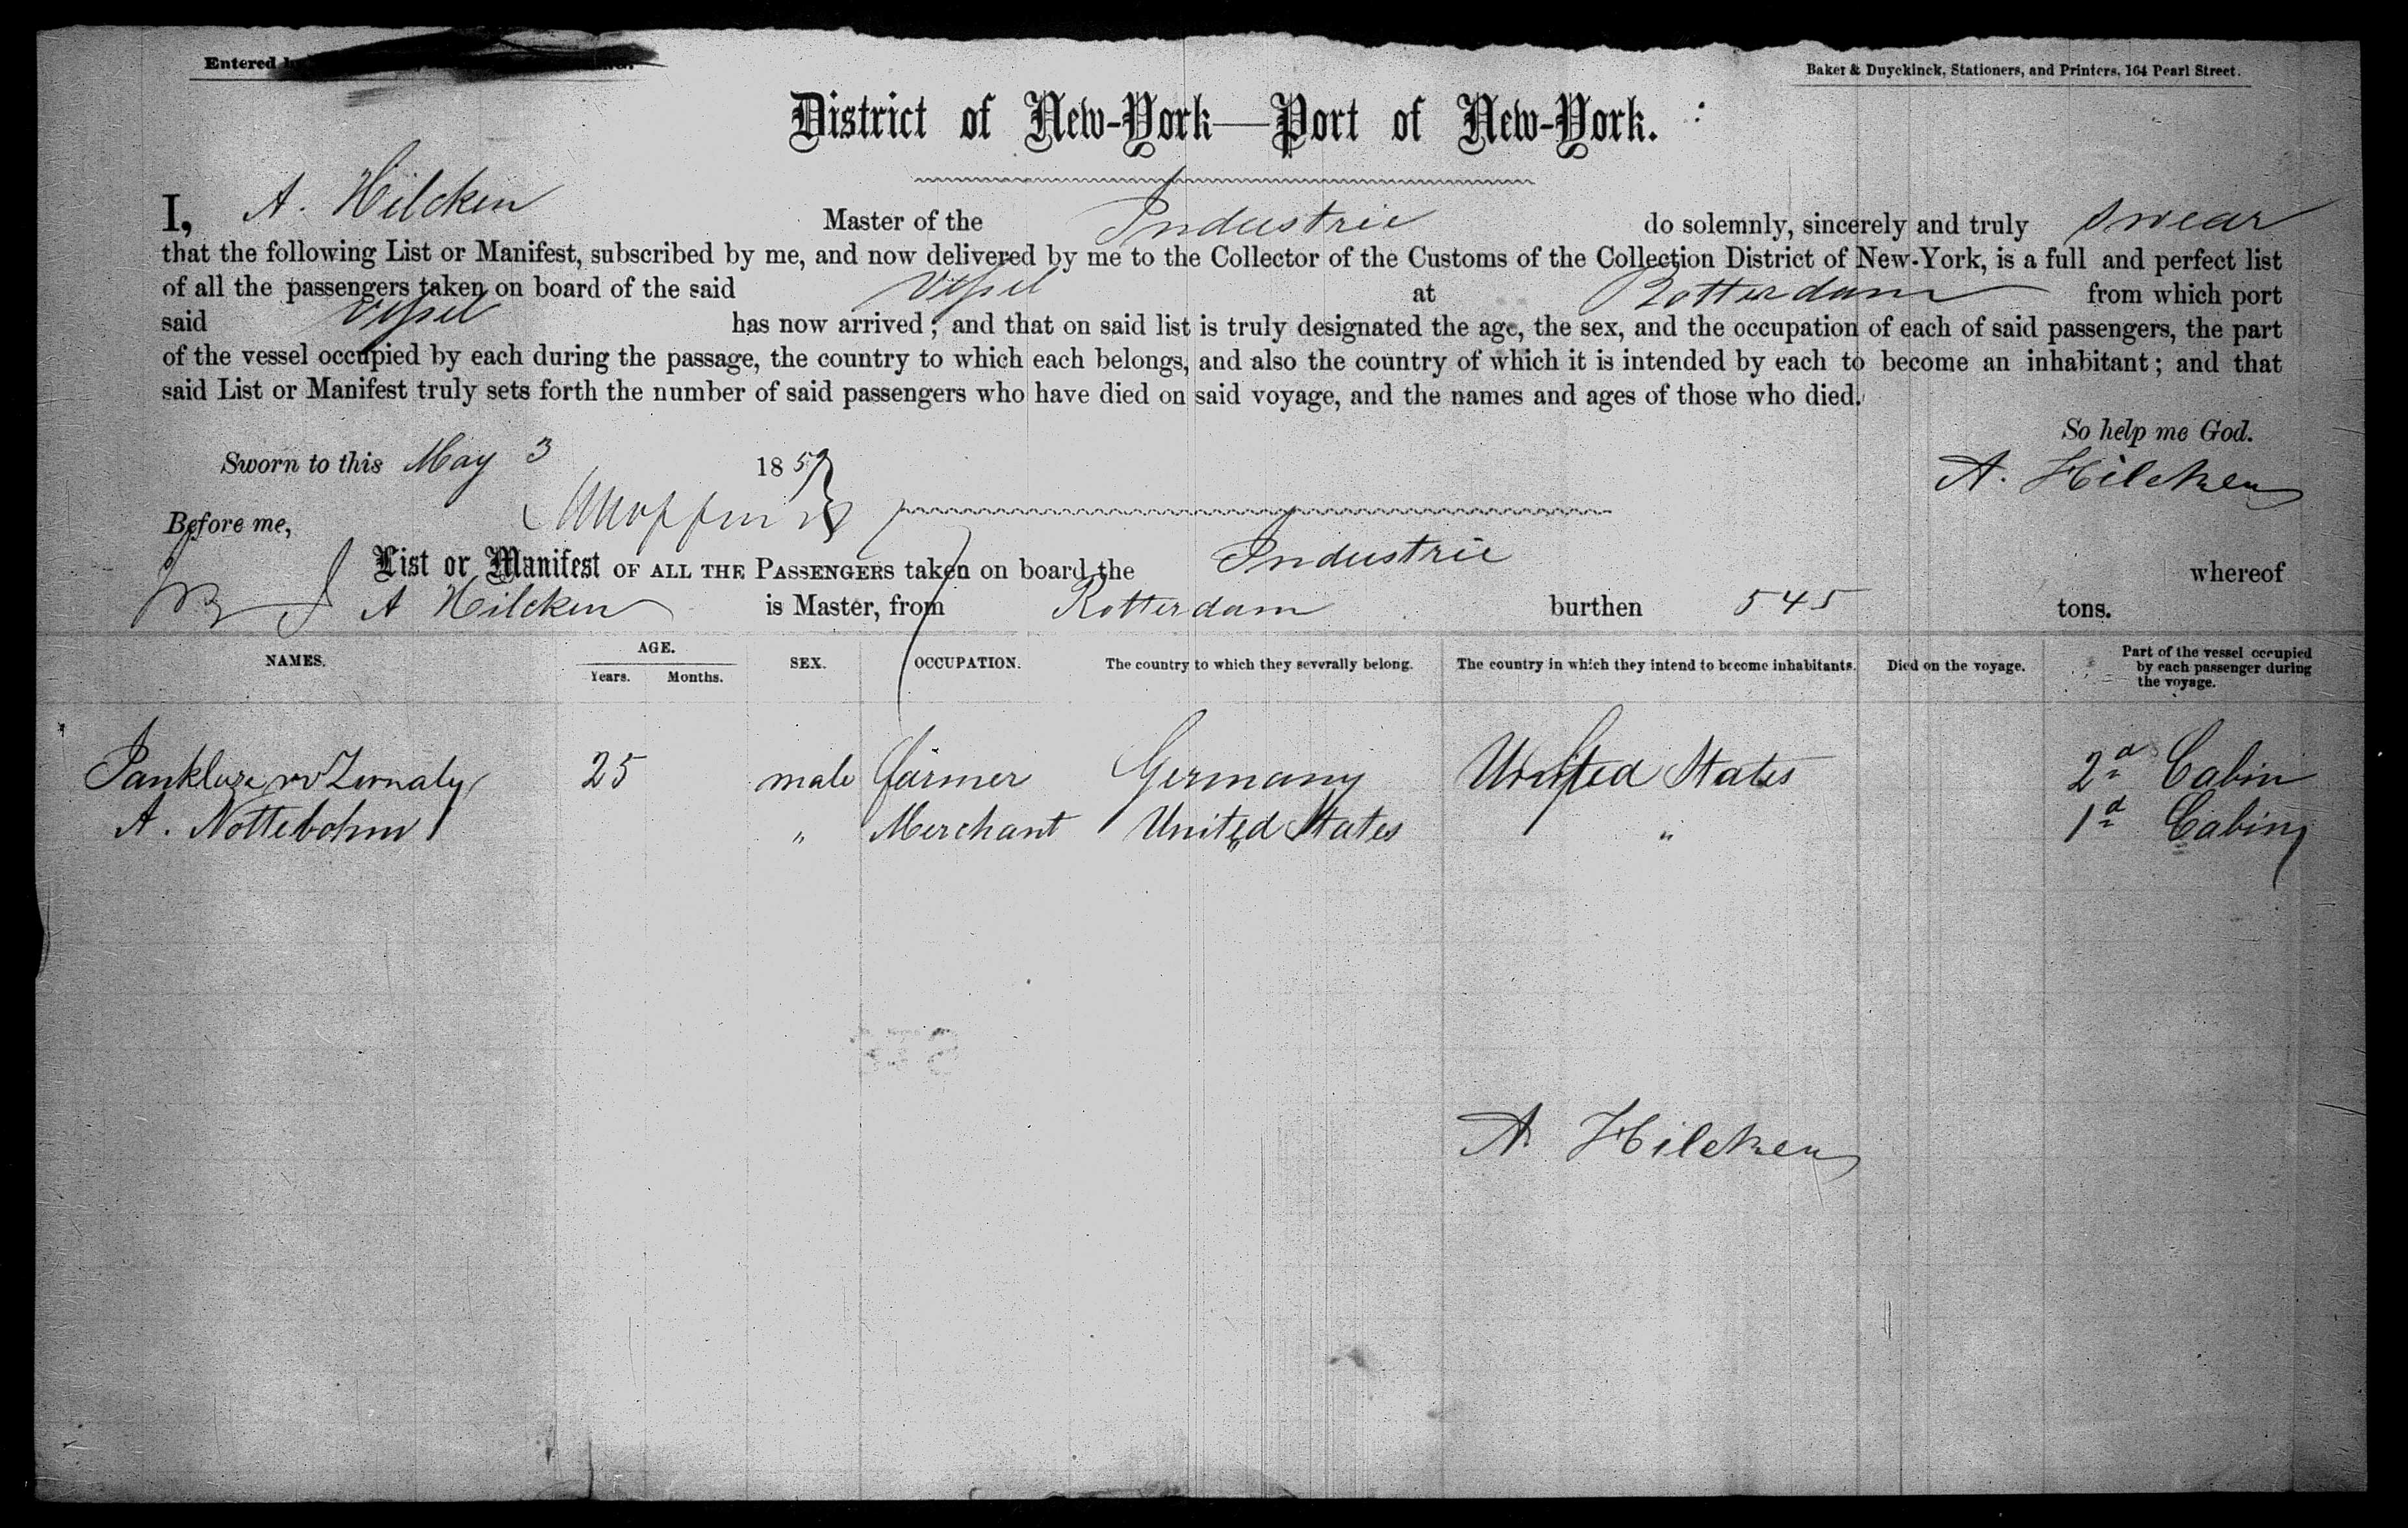 Entered
Baker & Duyckinck, Stationers, and Printers, 164 Pearl Street.
District of New-York—Port of New-York.
I, A. Hilcken Master of the Industrie do solemnly, sincerely and truly swear
that the following List or Manifest, subscribed by me, and now delivered by me to the Collector of the Customs of the Collection District of New-York, is a full and perfect list
of all the passengers taken on board of the said Vessel at Rotterdam from which port
said Vessel has now arrived; and that on said list is truly designated the age, the sex, and the occupation of each of said passengers, the part
of the vessel occupied by each during the passage, the country to which each belongs, and also the country of which it is intended by each to become an inhabitant; and that
said List or Manifest truly sets forth the number of said passengers who have died on said voyage, and the names and ages of those who died.
So help me God.
Sworn to this May 3 185
A. Hilcken
Before me,
List or Manifest OF ALL THE PASSENGERS taken on board the Industrie whereof
A Hilcken is Master, from Rotterdam burthen 545 tons.
NAMES. AGE. Years. Months. SEX. OCCUPATION. The country to which they severally belong. The country in which they intend to become inhabitants. Died on the voyage. Part of the vessel occupied by each passenger during the voyage.
25 male farmer Germany United States 2d Cabin
A. Nottebohm " Merchant United States " 1d Cabin
A Hilcken